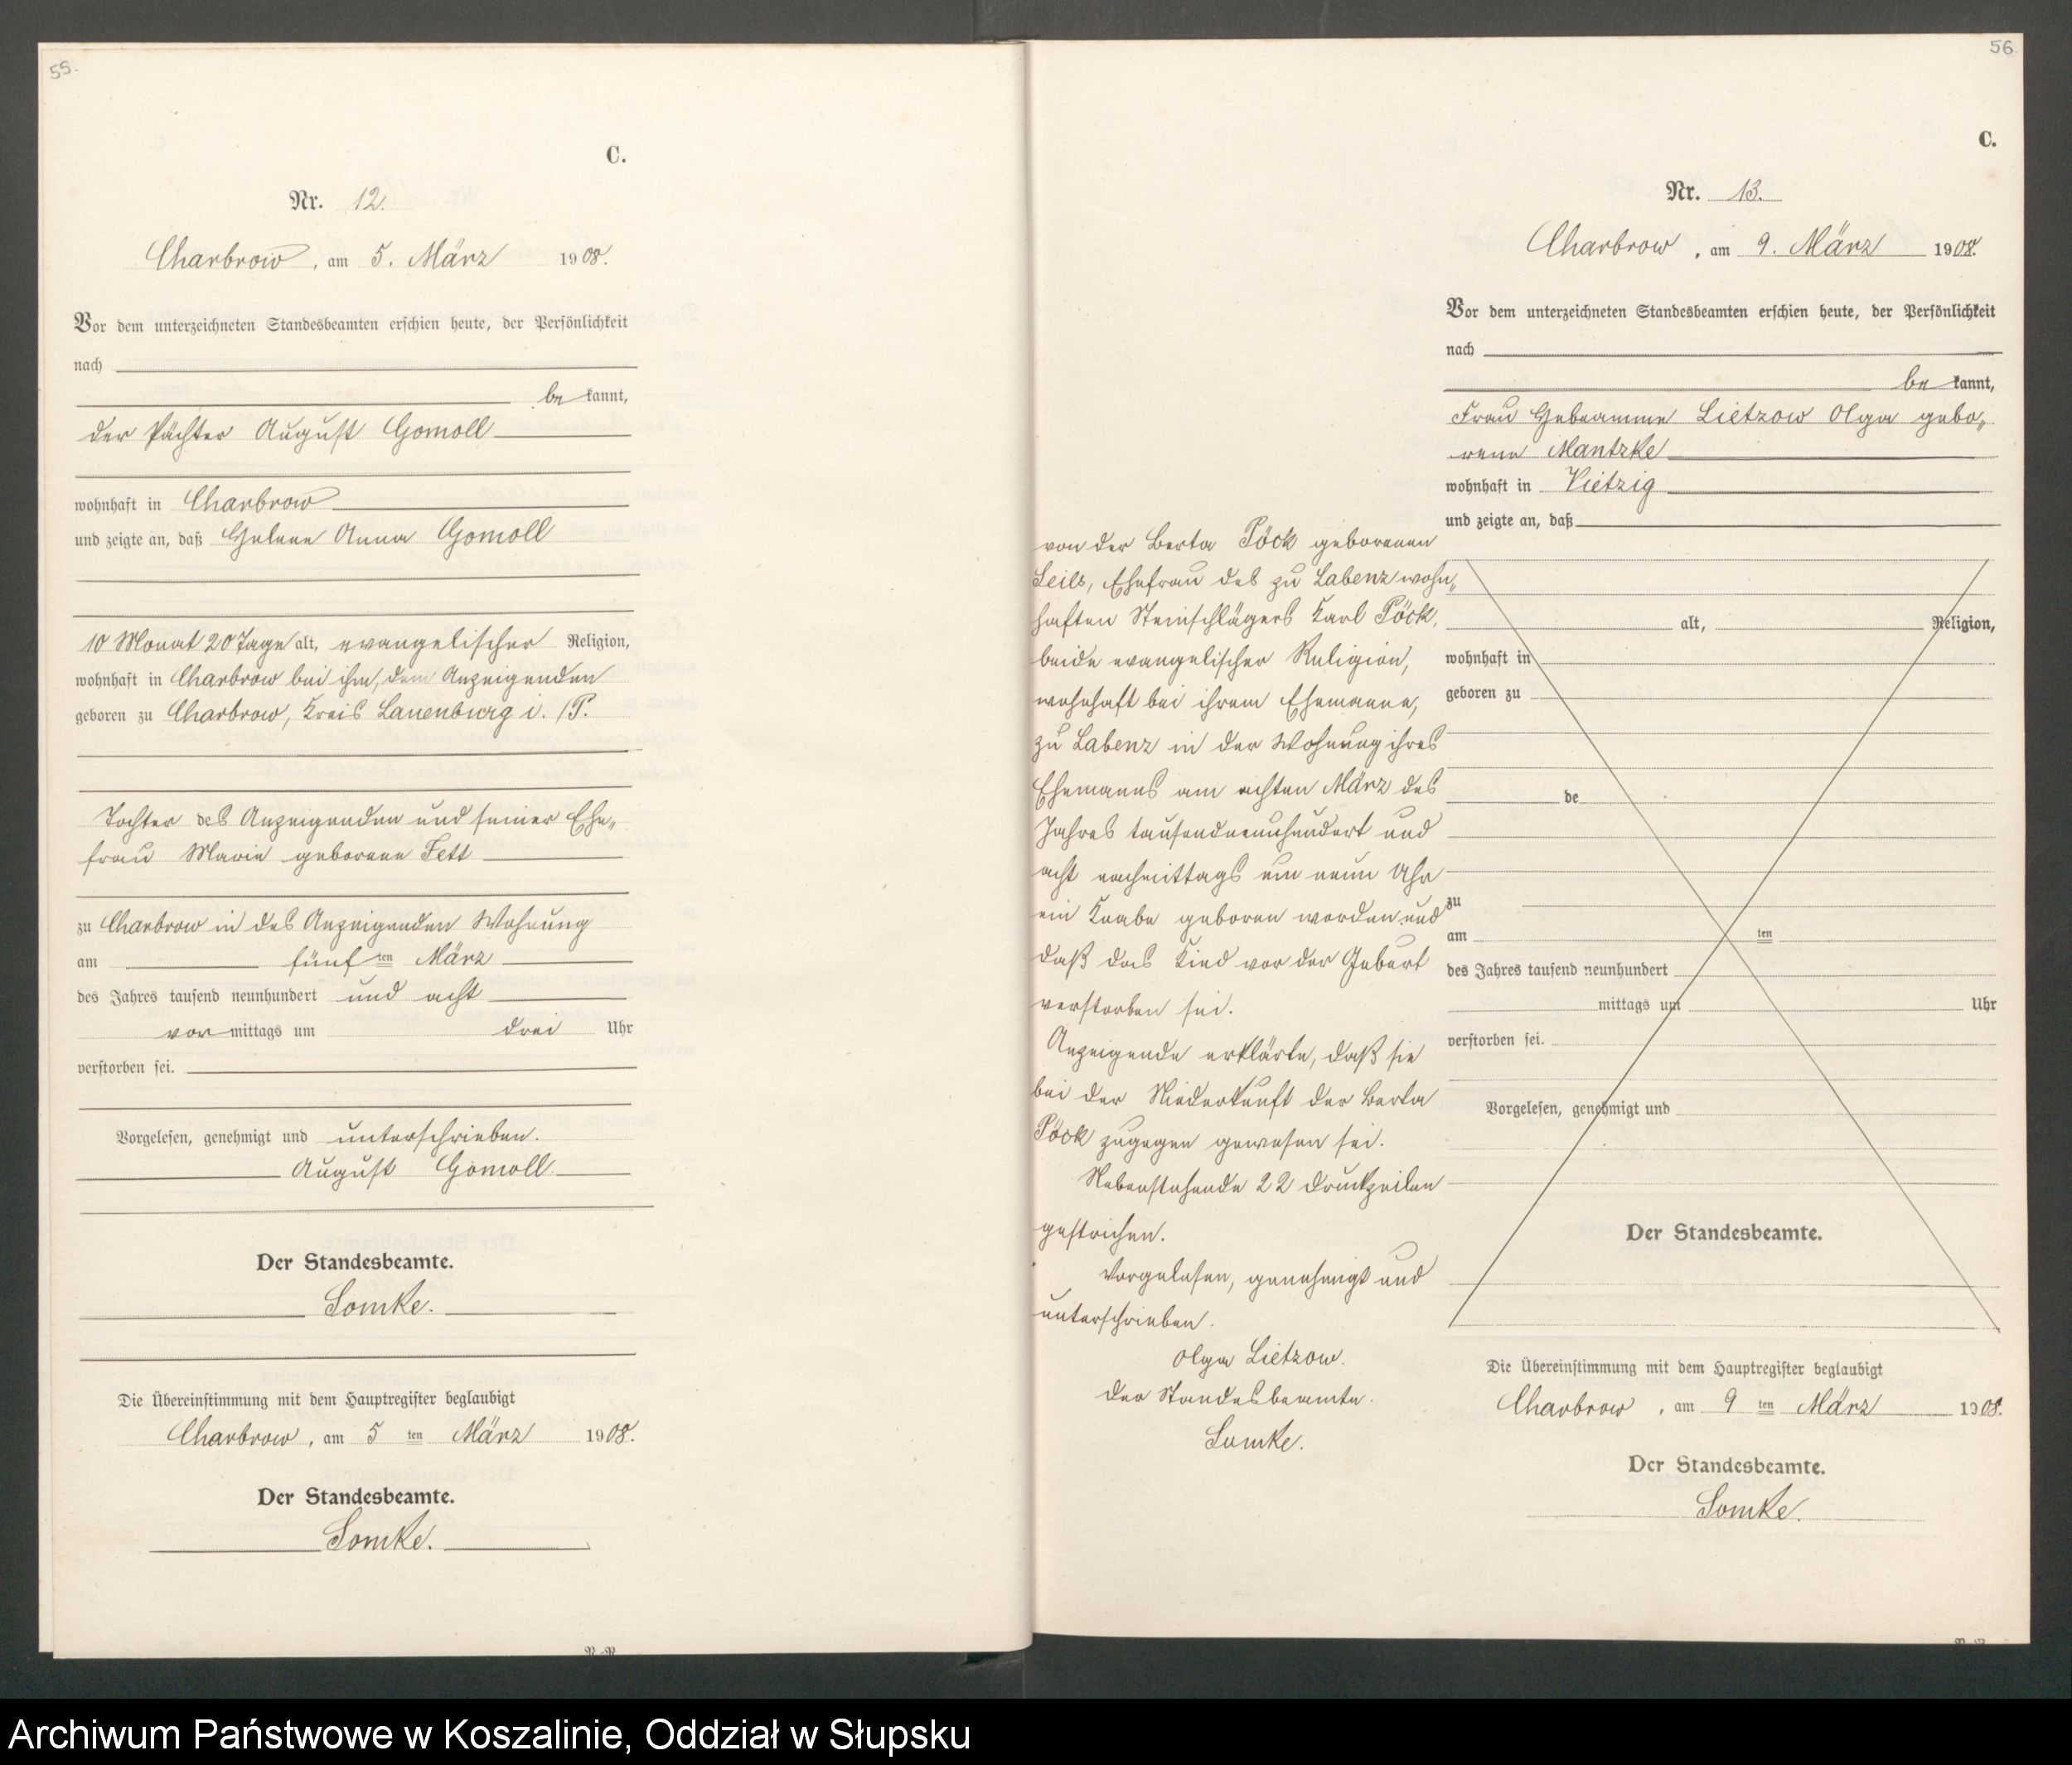 55.
C.
Nr. 12.
Charbrow, am 5. März 1908.
Vor dem unterzeichneten Standesbeamten erschien heute, der Persönlichkeit
nach
be kannt,
der Pächter August Gomoll
wohnhaft in Charbrow
und zeigte an, daß Helene Anna Gomoll
10 Monat 20 Tage alt, evangelischer Religion,
wohnhaft in Charbrow bei ihm, dem Anzeigenden
geboren zu Charbrow, Kreis Lauenburg i. /P.
Tochter des Anzeigenden und seiner Ehe„
frau Marie geborene Fett
zu Charbrow in des Anzeigenden Wohnung
am fünf ten März
des Jahres tausend neunhundert und acht
vor mittags um drei Uhr
verstorben sei.
Vorgelesen, genehmigt und unterschrieben.
August Gomoll
Der Standesbeamte.
Lomke.
Die Übereinstimmung mit dem Hauptregister beglaubigt
Charbrow, am 5 ten März 1908.
Der Standesbeamte.
Lomke.
56
C.
Nr. 13.
Charbrow, am 9. März 1908.
Vor dem unterzeichneten Standesbeamten erschien heute, der Persönlichkeit
nach
be kannt,
Frau Hebeamme Lietzow Olga gebo„
rene Mantzke
wohnhaft in Vietzig
und zeigte an, daß
von der Berta Pöck geborenen
Leils, Ehefrau des zu Labenz wohn„
haften Steinschlägers Karl Pöck,
beide evangelischer Religion,
wohnhaft bei ihrem Ehemanne,
zu Labenz in der Wohnung ihres
Ehemanns am achten März des
Jahres tausendneunhundert und
acht nachmittags um neun Uhr
ein Knabe geboren worden und
daß das Kind vor der Geburt
verstorben sei.
Anzeigende erklärte, daß sie
bei der Niederkunft der Berta
Pöck zugegen gewesen sei.
Nebenstehende 22 Druckzeilen
gestrichen.
Vorgelesen, genehmigt und
unterschrieben.
Olga Lietzow.
Der Standesbeamte.
Lomke.
alt, Religion,
wohnhaft in
geboren zu
de
zu
am ten
des Jahres tausend neunhundert
mittags um Uhr
verstorben sei.
Vorgelesen, genehmigt und
Der Standesbeamte.
Die Übereinstimmung mit dem Hauptregister beglaubigt
Charbrow, am 9 ten März 1908.
Der Standesbeamte.
Lomke.
Archiwum Państwowe w Koszalinie, Oddział w Słupsku